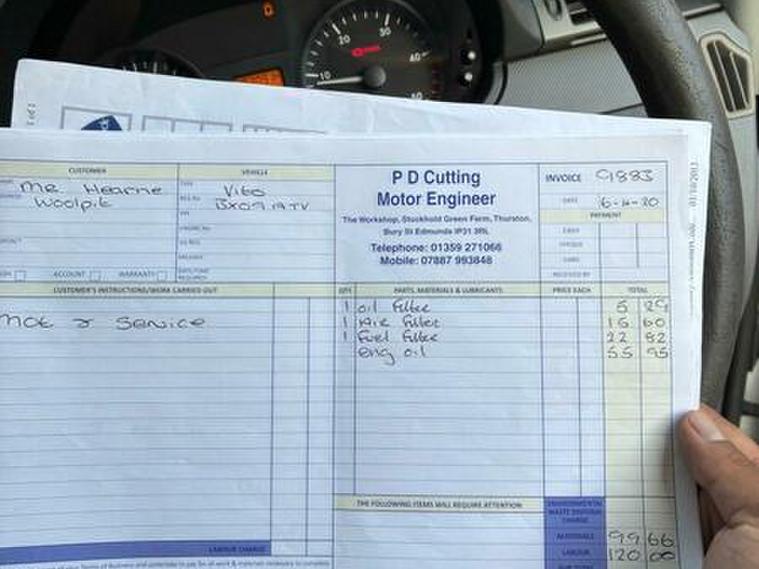 0
10
20
30
40
CUSTOMER
VEHICLE
P D Cutting
Motor Engineer
The Workshop, Stockhold Green Farm, Thurston,
Bury St Edmunds IP31 3RL
Telephone: 01359 271066
Mobile: 07887 993848
Mr Hearne
Woolpit
Vito
INVOICE 91883
DATE
PAYMENT
CASH
ACCOUNT
WARRANTY
RECEIVED BY
CUSTOMER'S INSTRUCTIONS/WORK CARRIED OUT
QTY. PARTS, MATERIALS & LUBRICANTS PRICE EACH TOTAL
MOT & Service
1 oil filter 5 29
1 Air filter 15 60
1 Fuel filter 22 82
eng oil 55 95
THE FOLLOWING ITEMS WILL REQUIRE ATTENTION
ENVIRONMENTAL
WASTE DISPOSAL
CHARGE
MATERIALS 99 66
LABOUR 120 00
LABOUR CHARGE